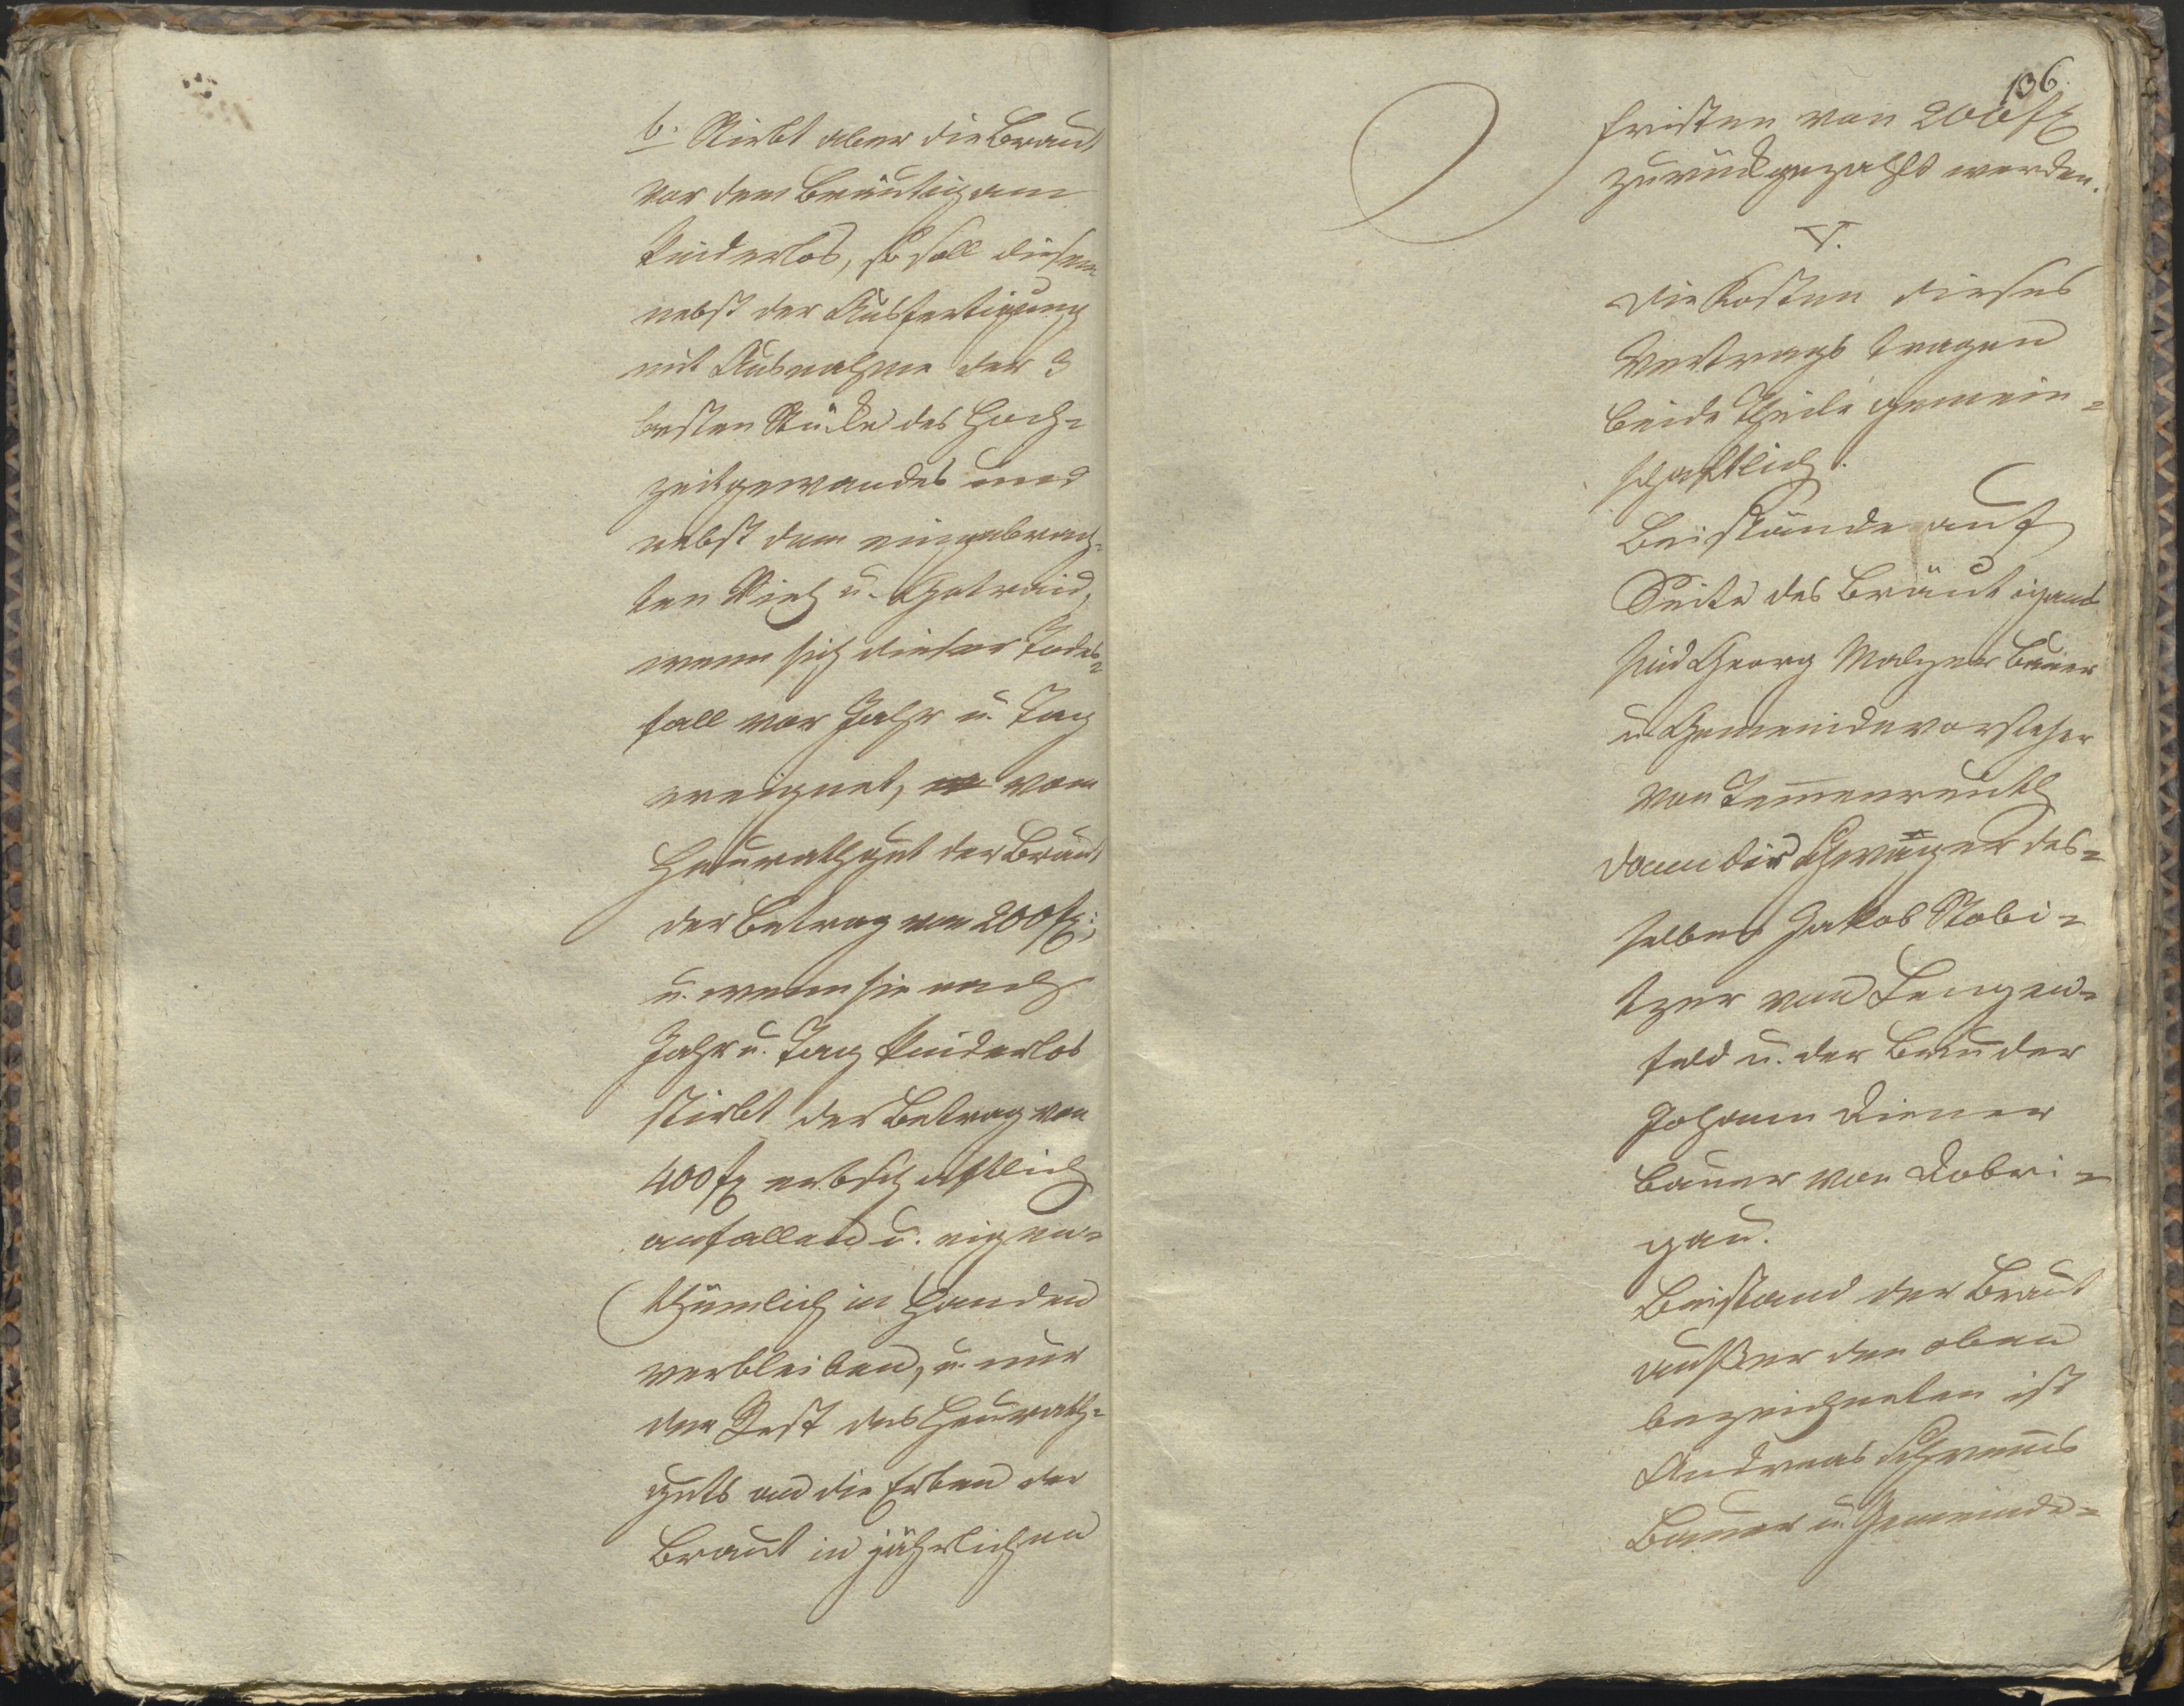 b. Stirbt aber die Braut
vor dem Bräutigam
kinderlos, so soll diesem
nebst der Ausfertigung
mit Ausnahme der 3
besten Stücke des Hoch=
zeitgewandes und
nebst dem eingebrach=
ten Vieh u. Getraid,
wenn sich dieser Todes=
fall vor Jahr u. Tag
ereignet, vom
Heurathgut der Braut
der Betrag von 200 fl;
u. wenn sie nach
Jahr u. Tag kinderlos
stirbt der Betrag von
400 fl erbschaftlich
anfallen u. eigen=
thümlich in Handen
verbleiben, u. nur
der Rest des Heurath=
guts an die Erben der
Braut in jährlichen
136.
Fristen von 200 fl
zurückgezahlt werden.
V.
Die Kosten dieses
Vertrags tragen
beide Theile gemein=
schaftlich.
Beistände auf
Seite des Bräutigams
sind Georg Malzer Bauer
u. Gemeindevorsteher
von Temenreuth
dann die Schwäger des=
selben Jakob Stobi=
tzer von Lengen=
feld u. der Bruder
Johann Diener
Bauer von Dobri=
gau.
Beistand der Braut
außer den oben
bezeichneten ist
Andreas
Bauer u. Gemeinde=